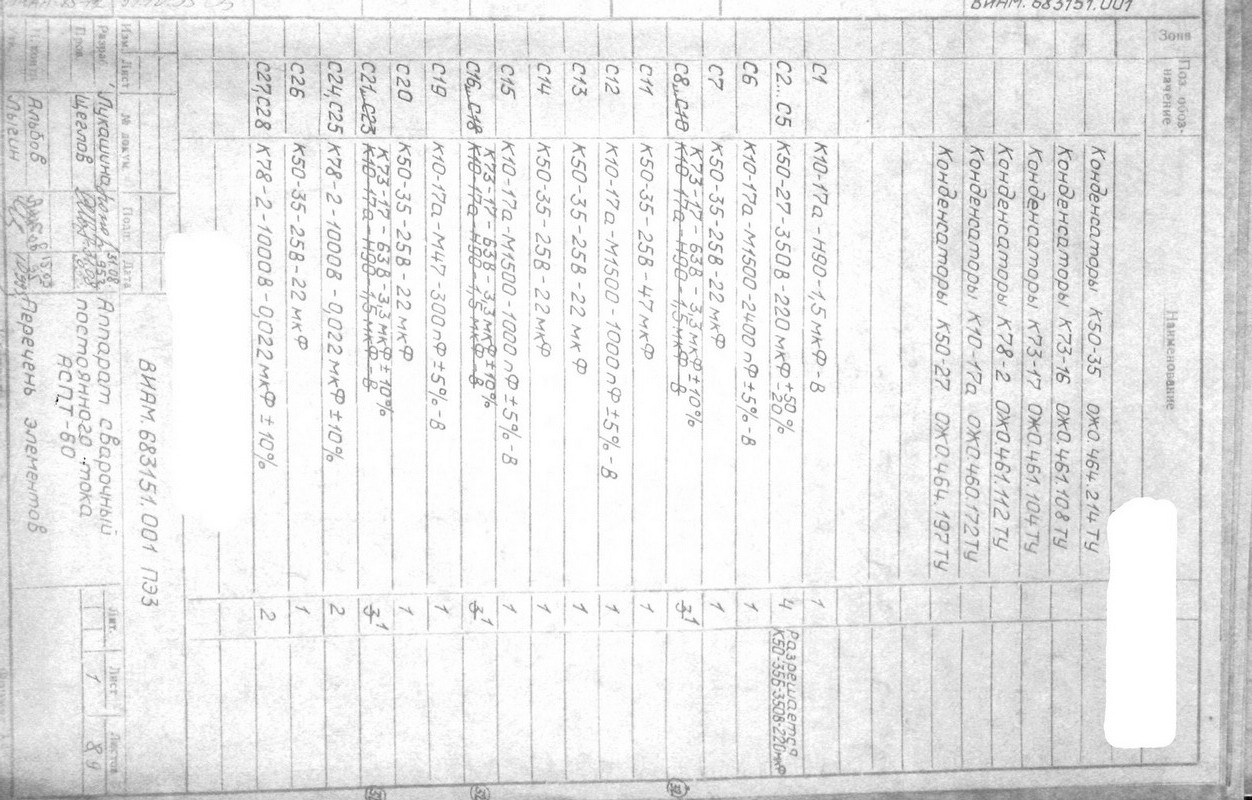 ВИАМ.683151.001
Зона
Поз. обоз-
начение
Наименование
Конденсаторы К50-35 ОЖ0.464.214ТУ
Конденсаторы К73-16 ОЖ0.461.108ТУ
Конденсаторы К73-17 ОЖ0.461.104ТУ
Конденсаторы К78-2 ОЖ0.461.112ТУ
Конденсаторы К10-17а ОЖ0.460.172ТУ
Конденсаторы К50-27 ОЖ0.464.197ТУ
С1 К10-17а-Н90-1,5мкФ-В 1
С2...С5 К50-27-350В-220 мкФ +50 -20% 4 Разрешается
К50-35Б-350В-220мкФ
С6 К10-17а-М1500-2400пФ±5%-В 1
С7 К50-35-25В-22 мкФ 1
К73-17-63В-3,3мкФ±10%
С8...С10 К10-17а-Н90-1,5мкФ-В 3 1
С11 К50-35-25В-47мкФ 1
С12 К10-17а-М1500-1000пФ±5%-В 1
С13 К50-35-25В-22 мкФ 1
С14 К50-35-25В-22мкФ 1
С15 К10-17а-М1500-1000пФ±5%-В 1
К73-17-63В-3,3мкФ±10%
С16...С18 К10-17а-Н90-1,5мкФ-В 3 1
С19 К10-17а-М47-300пФ±5%-В 1
С20 К50-35-25В-22мкФ 1
К73-17-63В-3,3мкФ±10%
С21...С23 К10-17а-Н90-1,5мкФ-В 3 1
С24,С25 К78-2-1000В-0,022мкФ±10% 2
С26 К50-35-25В-22мкФ 1
С27,С28 К78-2-1000В-0,022мкФ±10% 2
ВИАМ.683151.001 ПЭ3
Изм. Лист № докум. Подп. Дата
Разраб. Лукашина
Пров. Щеглов
Альбов
Лыгин
Аппарат сварочный
постоянного тока
АСПТ-60
Перечень элементов
Лит. Лист Листов
1 89